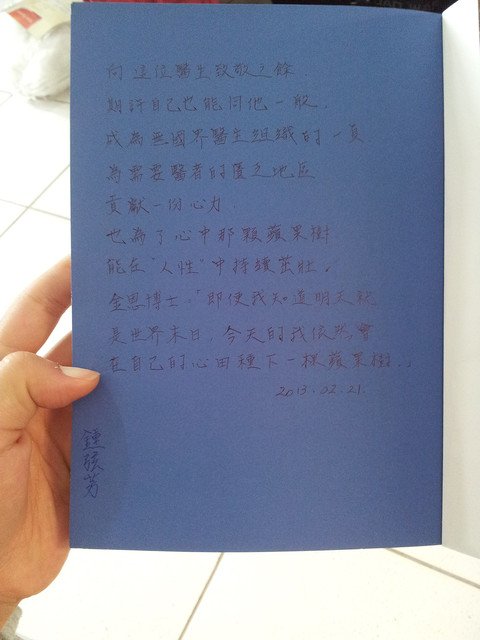 向這位醫生致敬之餘.
期許自己也能同他一般,
成為無國界醫生組織的一員
為需要醫者的匱乏地區
貢獻一份心力.
也為了心中那顆蘋果樹
能在"人性"中持續茁壯.
金恩博士:「即便我知道明天就
是世界末日,今天的我依然會
在自己的心田種下一棵蘋果樹.」
2013.02.21.
鍾 芳